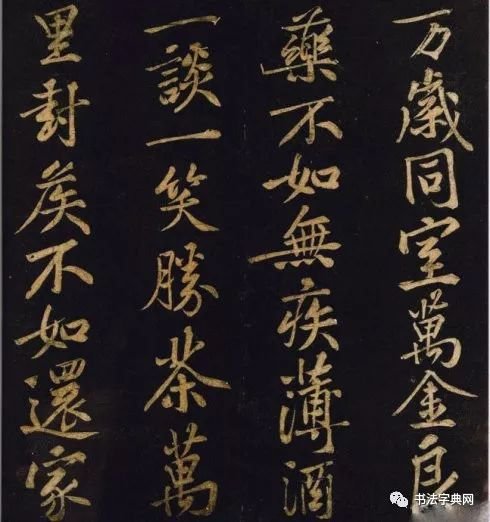 万歲同室萬金良
藥不如無疾薄酒
一談一笑勝茶萬
里封侯不如還家
书法字典网